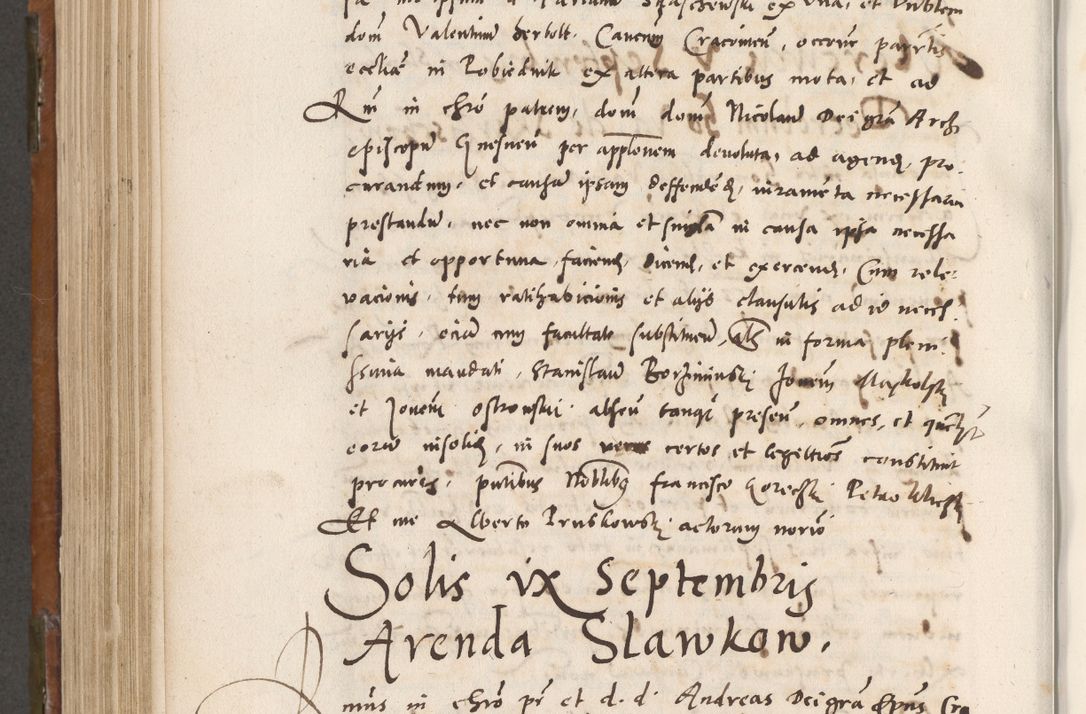 dom Valentinum bertolt. Canonicum Cracovien, occone partis
eccliae in Lobiednik ex altera partibus mota, et ad
Rm in chro patrem, dom dom Nicolaum Dei gra Archi
episcopum Gnesnen per applonem devoluta, ad agend, pro
curandum, et causam ipsam deffendend, iuramenta necessaria
prestandum, nec non omnia et singla in causa ipsa necessa
ria et opportuna, faciend, dicend, et exercend, Cum rele
vacionis, tum ratihabicionis et aliis clausulis ad id neces
sarijs, eciam cum facultate substituen, als in forma pleni
ssima mandati, Stanislaum Borziminski Joannem
et Joannem ostrowski absen tanq presen, omnes, et
eorum insolid, in suos veros certos et legittios constituit
procures, pntibus Noblibus francisco Goreczki Petro
Et me Alberto Pruskowski actorum norio
Solis ix Septembris
Arenda Slawkow.
mus in chro pr et d. d. Andreas Dei gra Epus Cra